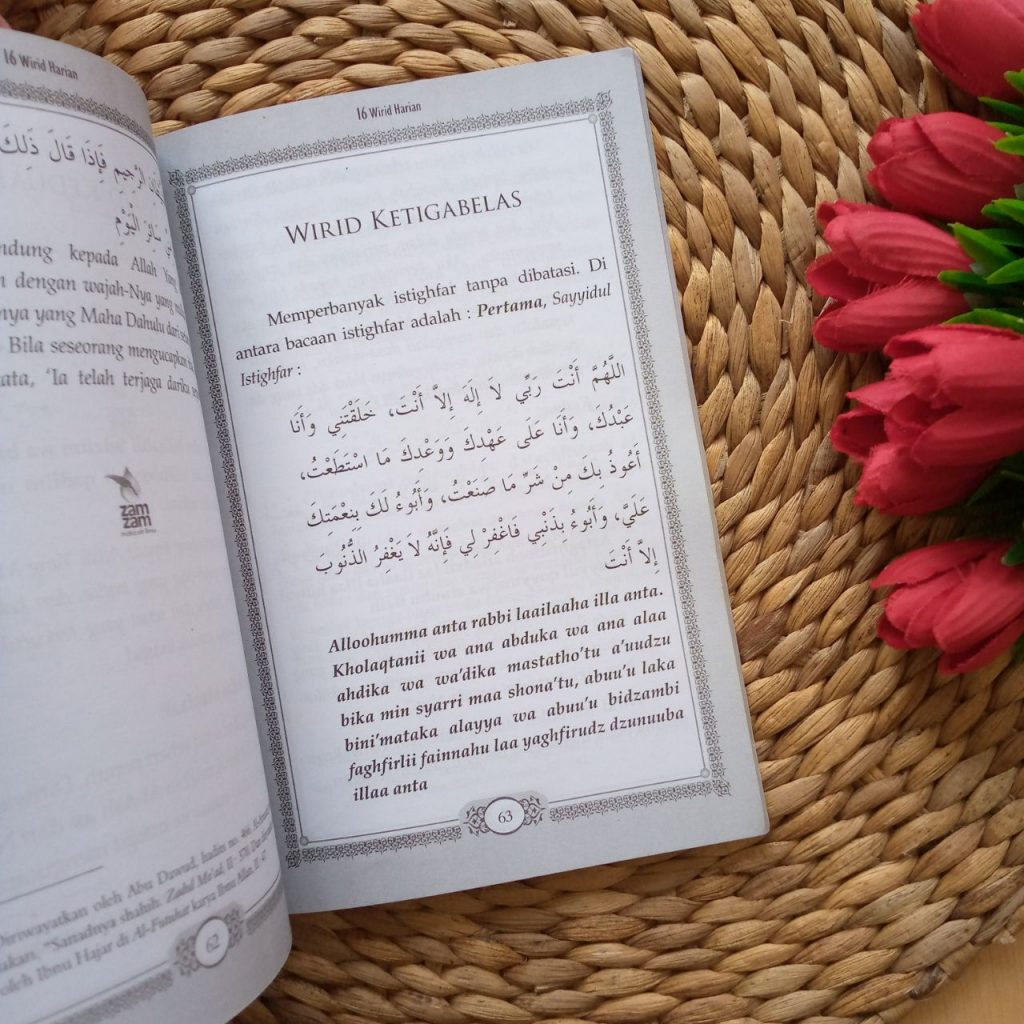 16 Wirid Harian
الرَّجِيمِ فَإِذَا قَالَ ذَلِكَ
سَائِرَ الْيَوْمِ
kepada Allah Yang
dengan wajah-Nya yang
yang Maha Dahulu dari
Bila seseorang mengucapkan
'Ia telah terjaga dariku
zam
zam
oleh Abu Dawud, hadits no. 466,
"Sanadnya shahih. Zadul Ma'ad, II : 370
oleh Ibnu Hajar di Al-Futuhat karya Ibnu Allan, II: 47
62
16 Wirid Harian
WIRID KETIGABELAS
Memperbanyak istighfar tanpa dibatasi. Di
antara bacaan istighfar adalah : Pertama, Sayyidul
Istighfar :
اللَّهُمَّ أَنْتَ رَبِّي لَا إِلَهَ إِلاَّ أَنْتَ، خَلَقْتَنِي وَأَنَا
عَبْدُكَ، وَأَنَا عَلَى عَهْدِكَ وَوَعْدِكَ مَا اسْتَطَعْتُ،
أَعُوذُ بِكَ مِنْ شَرِّ مَا صَنَعْتُ، وَأَبُوءُ لَكَ بِنِعْمَتِكَ
عَلَيَّ، وَأَبُوءُ بِذَنْبِي فَاغْفِرْ لِي فَإِنَّهُ لاَ يَغْفِرُ الذُّنُوبَ
إِلاَّ أَنْتَ
Alloohumma anta rabbi laailaaha illa anta.
Kholaqtanii wa ana abduka wa ana alaa
ahdika wa wa'dika mastatho'tu a'uudzu
bika min syarri maa shona'tu, abuu'u laka
bini'mataka alayya wa abuu'u bidzambi
faghfirlii fainnahu laa yaghfirudz dzunuuba
illaa anta
63